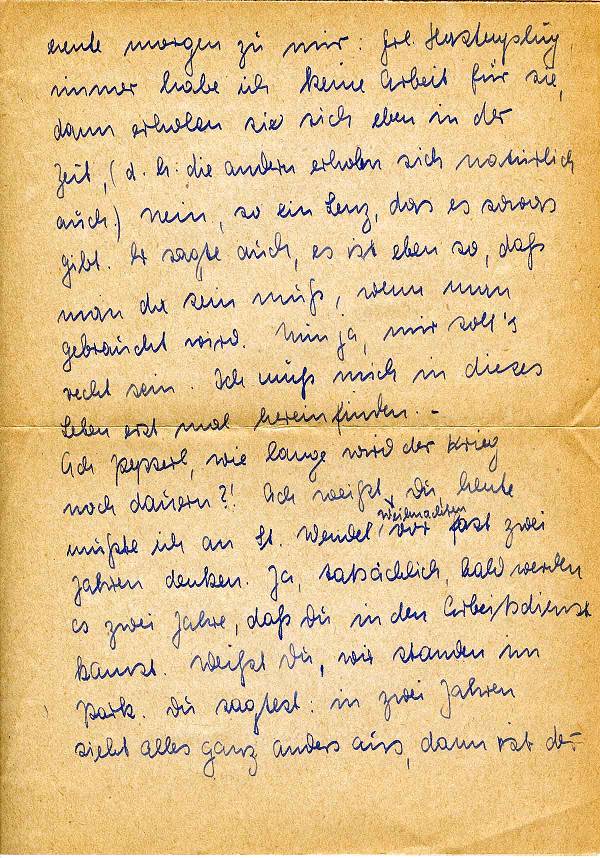 heute morgen zu mir: Frl.
immer habe ich keine Arbeit für sie,
dann erholen sie sich eben in der
Zeit, (d. h. die andern erholen sich natürlich
auch.) Nein, so ein Lenz, das es sowas
gibt. Er sagte auch, es ist eben so, daß
man da sein muß, wenn man
gebraucht wird. Nun ja, mir soll's
recht sein. Ich muß mich in dieses
Leben erst mal hereinfinden. -
Ach Pepperl, wie lange wird der Krieg
noch dauern?! Ach weißt Du, heute
mußte ich an St. Wendel, Weihnachten vor fast zwei
Jahren denken. Ja, tatsächlich, bald werden
es zwei Jahre, daß Du in den Arbeitsdienst
kamst. Weißt Du, wir standen im
Park. Du sagtest: in zwei Jahren
sieht alles ganz anders aus, dann ist der